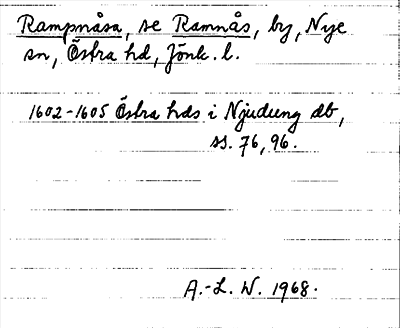 Rampnåsa, se Ramnås, by, Nye
sn, Östra hd, Jönk. l.
1602-1605 Östra hds i Njudung db,
ss. 76, 96.
A.-L. W. 1968.